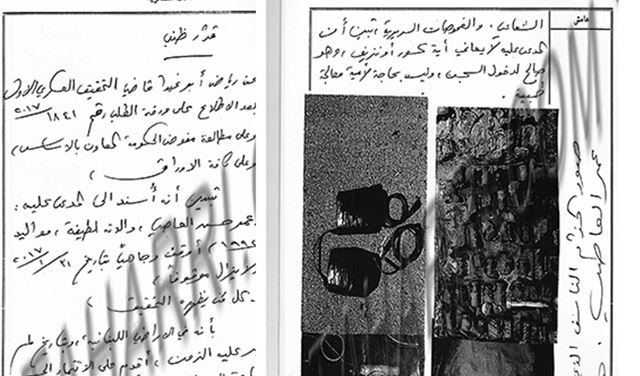 قرار ظني
نحن رياض أبو غيدا قاضي التحقيق العسكري الاول
بعد الاطلاع على ورقة الطلب رقم ١٨٤١/٢٠١٧
وعلى مطالعة مفوض الحكومة المعاون بالاساس،
وعلى كافة الاوراق،
تبين أنه أُسند الى المدعى عليه:
عمر حسن العاصي، والدته لطيفة، مواليد
١٩٩٢، أوقف وجاهياً بتاريخ ٢١/١/٢٠١٧
ولا يزال موقوفاً،
وكل من يظهره التحقيق،
بأنه في الاراضي اللبنانية، وبتاريخ لم
يمر عليه الزمن، أقدم على الانتماء الى
هامش
الشعاعي، والفحوصات السريرية، تبين أن
المدعى عليه لا يعاني أية كسور أو نزيف، وهو
صالح لدخول السجن، وليس بحاجة لأية معالجة
طبية.
صور الحزام الناسف
عمر العاصي.